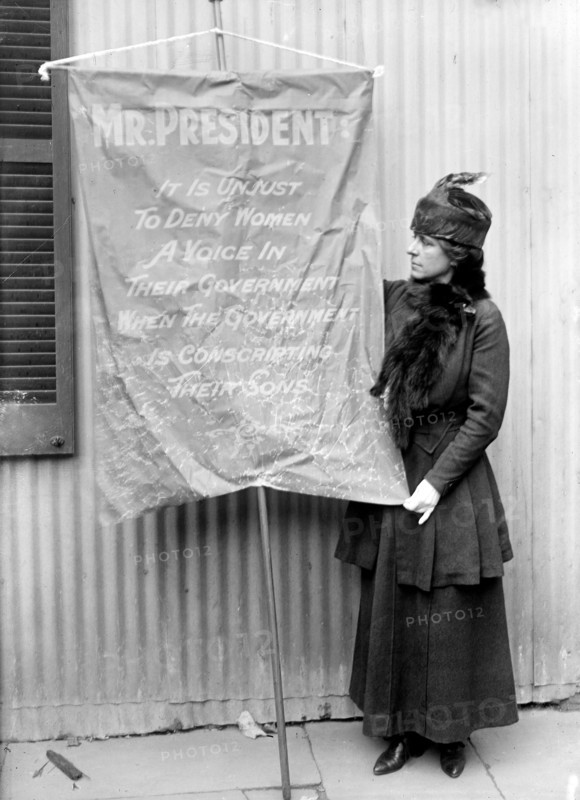 MR. PRESIDENT:
IT IS UNJUST
TO DENY WOMEN
A VOICE IN
THEIR GOVERNMENT
WHEN THE GOVERNMENT
IS CONSCRIPTING
THEIR SONS.
PHOTO12
PHOTO12
PHOTO12
PHOTO12
PHOTO12